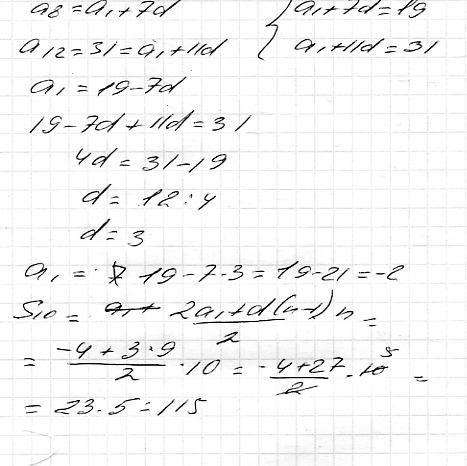 a₈ = a₁ + 7d { a₁ + 7d = 19
a₁₂ = 31 = a₁ + 11d { a₁ + 11d = 31
a₁ = 19 - 7d
19 - 7d + 11d = 31
4d = 31 - 19
d = 12 : 4
d = 3
a₁ = 19 - 7 · 3 = 19 - 21 = -2
S₁₀ = a₁ + 2a₁ + d(n-1)/2 n =
= -4 + 3 · 9/2 · 10 = -4 + 27/2 · 10 5 =
= 23 · 5 = 115